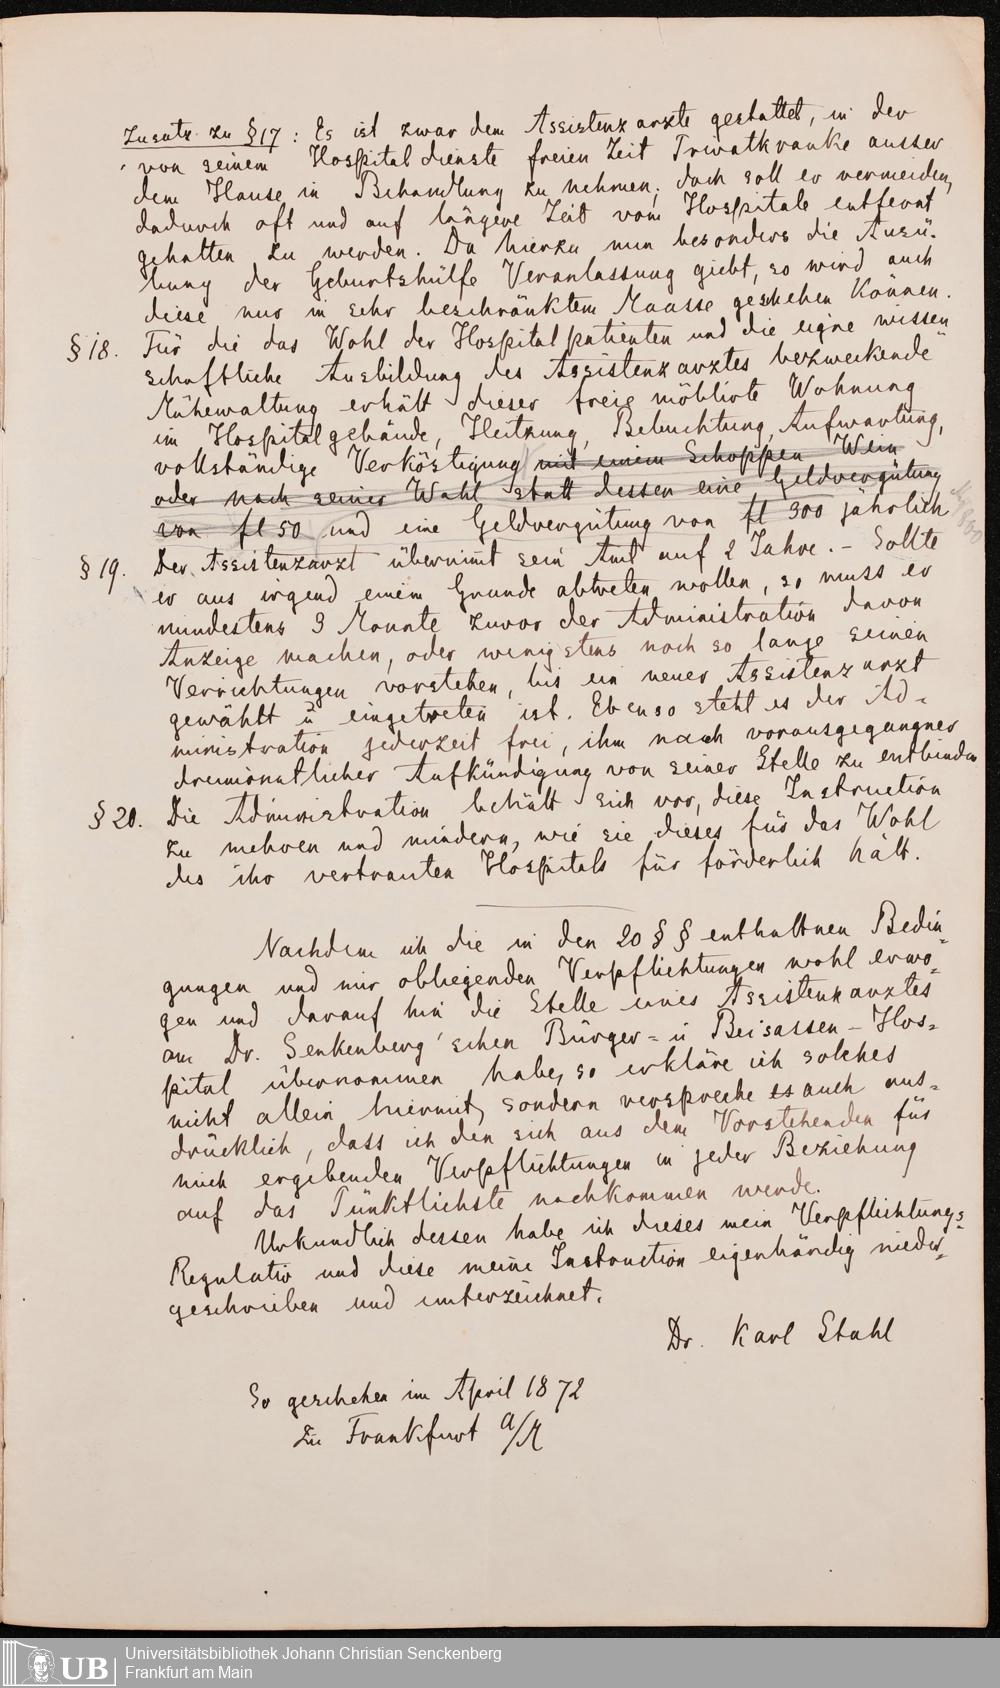 Zusatz zu § 17 : Es ist zwar dem Assistenzarzte gestattet, in der
von seinem Hospitaldienste freien Zeit Privatkranke ausser
dem Hause in Behandlung zu nehmen; doch soll er vermeiden,
dadurch oft und auf längere Zeit vom Hospitale entfernt
gehalten zu werden. Da hierzu nun besonders die Ausü-
bung der Geburtshülfe Veranlassung giebt, so wird auch
diese nur in sehr beschränktem Maasse geschehen können.
§ 18. Für die das Wohl der Hospitalpatienten und die eigne wissen
schaftliche Ausbildung des Assistenzarztes bezweckende
Mühewaltung erhält dieser freie möblirte Wohnung
im Hospitalgebäude, Heitzung, Beleuchtung, Aufwartung,
vollständige Verköstigung mit einem Schoppen Wein
oder nach seiner Wahl statt dessen eine Geldvergütung
von fl 50 und eine Geldvergütung von fl 300 jährlich
§ 19. Der Assistenzarzt übernimt sein Amt auf 2 Jahre. – Sollte
er aus irgend einem Grunde abtreten wollen, so muss er
mindestens 3 Monate zuvor der Administration davon
Anzeige machen, oder wenigstens noch so lange seinen
Verrichtungen vorstehen, bis ein neuer Assistenzarzt
gewählt u eingetreten ist. Ebenso steht es der Ad-
ministration jederzeit frei, ihm nach vorausgegangner
dreimonatlicher Aufkündigung von seiner Stelle zu entbinden
§ 20. Die Administration behält sich vor, diese Instruction
zu mehren und mindern, wie sie dieses für das Wohl
des ihr vertrauten Hospitals für förderlich hält.
Nachdem ich die in den 20 § § enthaltnen Bedin-
gungen und mir obliegenden Verpflichtungen wohl erwo-
gen und darauf hin die Stelle eines Assistenzarztes
am Dr. Senkenberg'schen Bürger- u Beisassen-Hos-
pital übernommen habe, so erkläre ich solches
nicht allein hiermit, sondern verspreche es auch aus-
drücklich, dass ich den sich aus dem Vorstehenden für
mich ergebenden Verpflichtungen in jeder Beziehung
auf das Pünktlichste nachkommen werde.
Urkundlich dessen habe ich dieses mein Verpflichtungs-
Regulativ und diese meine Instruction eigenhändig nieder-
geschrieben und unterzeichnet.
Dr. Karl Stahl
So geschehen im April 1872
zu Frankfurt a/M
UB
Universitätsbibliothek Johann Christian Senckenberg
Frankfurt am Main